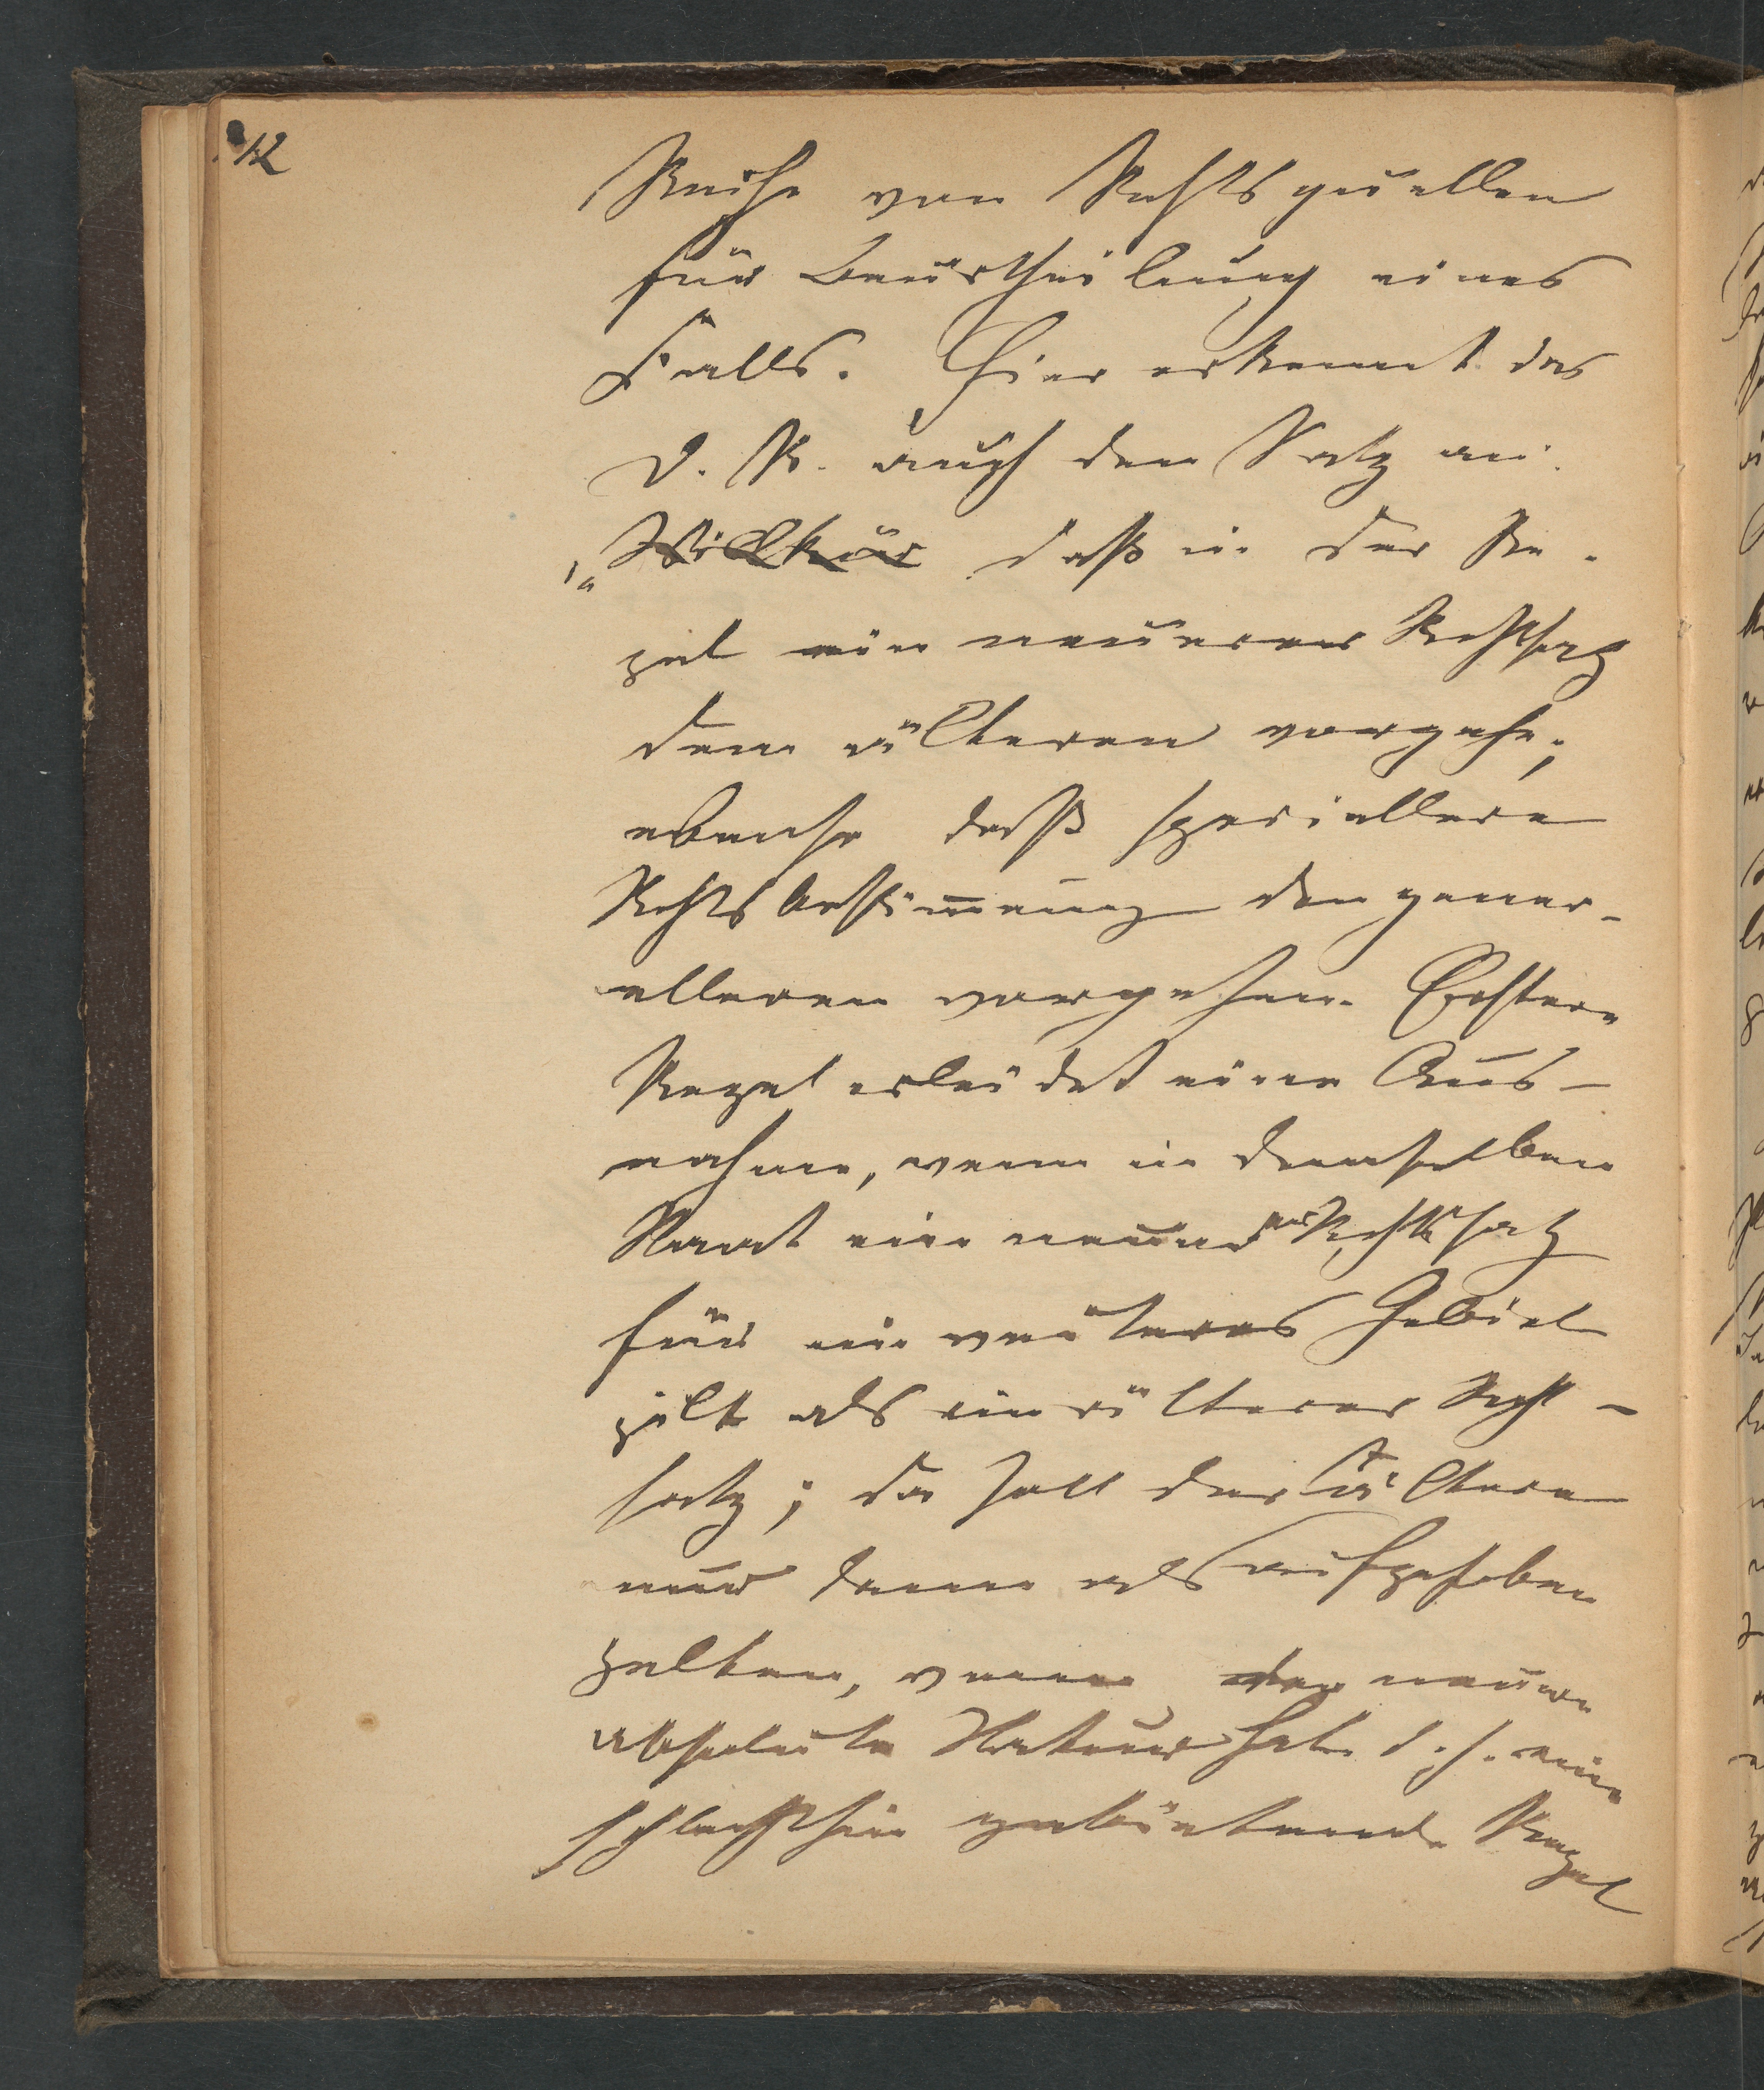 12
Reihe von Rechtsquellen
für Beurtheilung eines
Falls. Hier erkennt das
D. R. auch den Satz an:
„Willkür daß in der Re-
gel ein neuerer Rechtssatz
dem älteren vorgehe;
ebenso daß speciellere
Rechtsbestimmung den gener-
elleren vorgehen. Erstere
Regel erleidet eine Aus-
nahme, wenn in demselben
Staat ein neuerer Rechtssatz
für ein weiteres Gebiet
gilt als ein älterer Recht-
satz; da soll der ältere
nur dann als aufgehoben
gelten, wenn der neuere
absolute Natur hat d. h. eine
schlechthin gebietende Regel